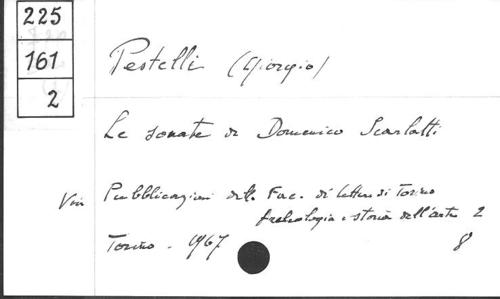 225
161
2
Pestelli (Giorgio)
Le sonate di Domenico Scarlatti
Pubblicazioni della Fac. di lettere di Torino
archeologia e storia dell'arte 2
Torino - 1967
8